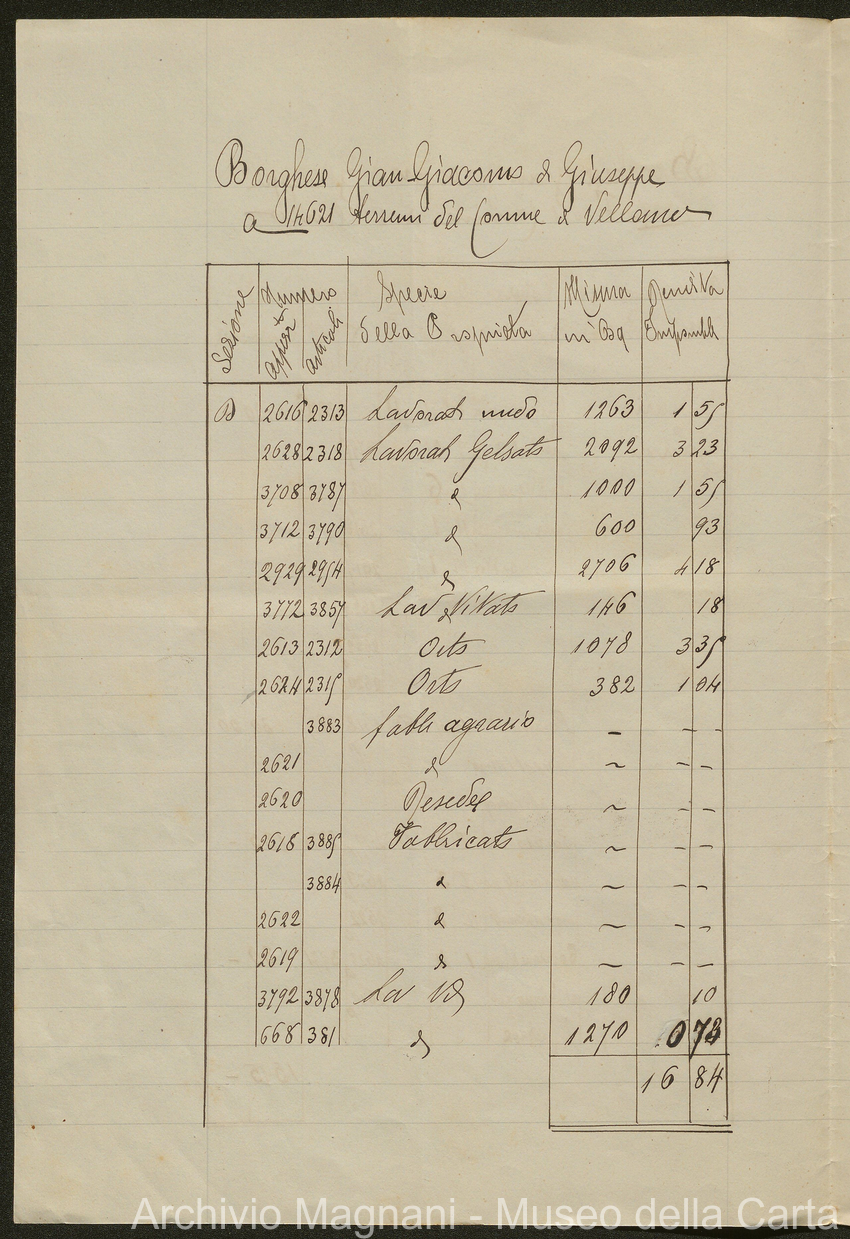 Borghese Gian Giacomo di Giuseppe
a 14621 terreni del Comune di Vellano
Sezione Numero Specie Misura Rendita
appezto articoli della Proprietà in Bq Imponibile
B 2616 2313 Lavorat nudo 1263 1 55
2628 2318 Lavorat Gelsato 2092 3 23
3708 3787 d 1000 1 55
3712 3790 d 600 93
2929 2954 d 2706 4 18
3772 3857 Lav Vitato 146 18
2613 2312 Orto 1078 3 35
2624 2315 Orto 382 1 04
3883 fabb agrario – – –
2621 d ~ – –
2620 Resedе ~ – –
2618 3885 Fabbricato ~ – –
3884 d ~ – –
2622 d ~ – –
2619 d ~ – –
3792 3878 La Vd 180 10
668 381 d 1270 0 73
16 84
Archivio Magnani - Museo della Carta